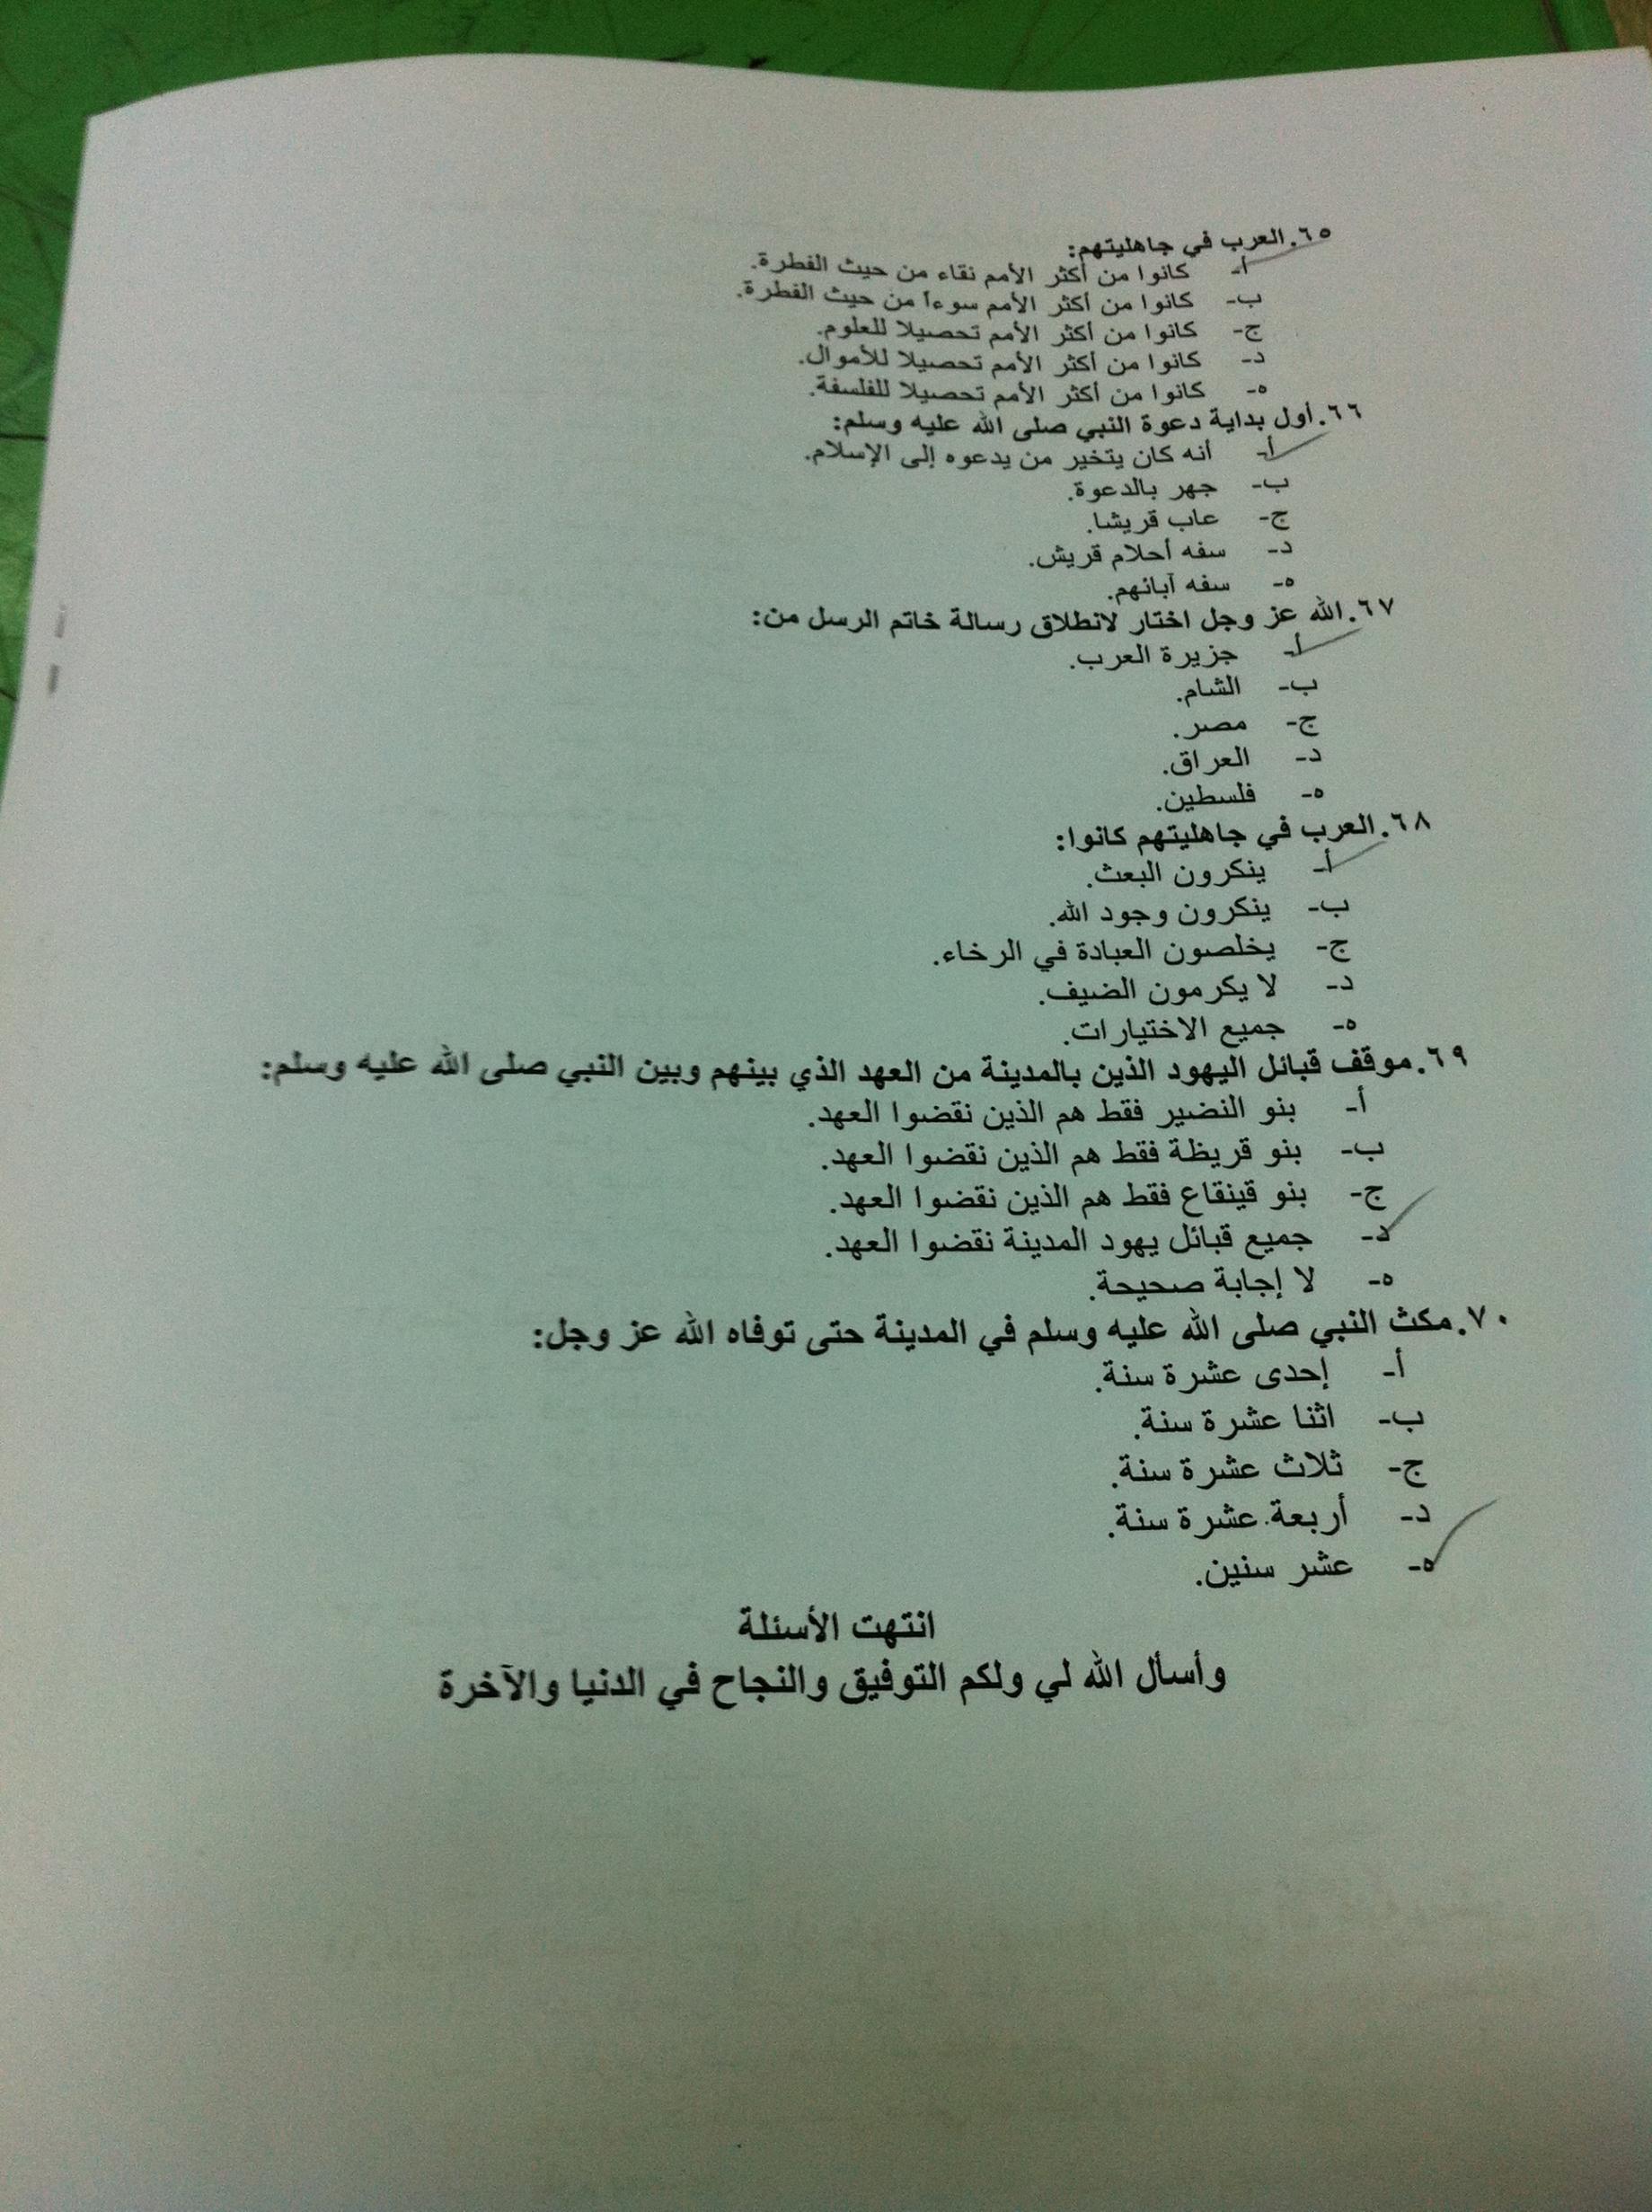 ٦٥.العرب في جاهليتهم:
أ- كانوا من أكثر الأمم نقاء من حيث الفطرة.
ب- كانوا من أكثر الأمم سوءاً من حيث الفطرة.
ج- كانوا من أكثر الأمم تحصيلا للعلوم.
د- كانوا من أكثر الأمم تحصيلا للأموال.
ه- كانوا من أكثر الأمم تحصيلا للفلسفة.
٦٦.أول بداية دعوة النبي صلى الله عليه وسلم:
أ- أنه كان يتخير من يدعوه إلى الإسلام.
ب- جهر بالدعوة.
ج- عاب قريشا.
د- سفه أحلام قريش.
ه- سفه آبائهم.
٦٧.الله عز وجل اختار لانطلاق رسالة خاتم الرسل من:
أ- جزيرة العرب.
ب- الشام.
ج- مصر.
د- العراق.
ه- فلسطين.
٦٨.العرب في جاهليتهم كانوا:
أ- ينكرون البعث.
ب- ينكرون وجود الله.
ج- يخلصون العبادة في الرخاء.
د- لا يكرمون الضيف.
ه- جميع الاختيارات.
٦٩.موقف قبائل اليهود الذين بالمدينة من العهد الذي بينهم وبين النبي صلى الله عليه وسلم:
أ- بنو النضير فقط هم الذين نقضوا العهد.
ب- بنو قريظة فقط هم الذين نقضوا العهد.
ج- بنو قينقاع فقط هم الذين نقضوا العهد.
د- جميع قبائل يهود المدينة نقضوا العهد.
ه- لا إجابة صحيحة.
٧٠.مكث النبي صلى الله عليه وسلم في المدينة حتى توفاه الله عز وجل:
أ- إحدى عشرة سنة.
ب- اثنا عشرة سنة.
ج- ثلاث عشرة سنة.
د- أربعة عشرة سنة.
ه- عشر سنين.
انتهت الأسئلة
وأسأل الله لي ولكم التوفيق والنجاح في الدنيا والآخرة